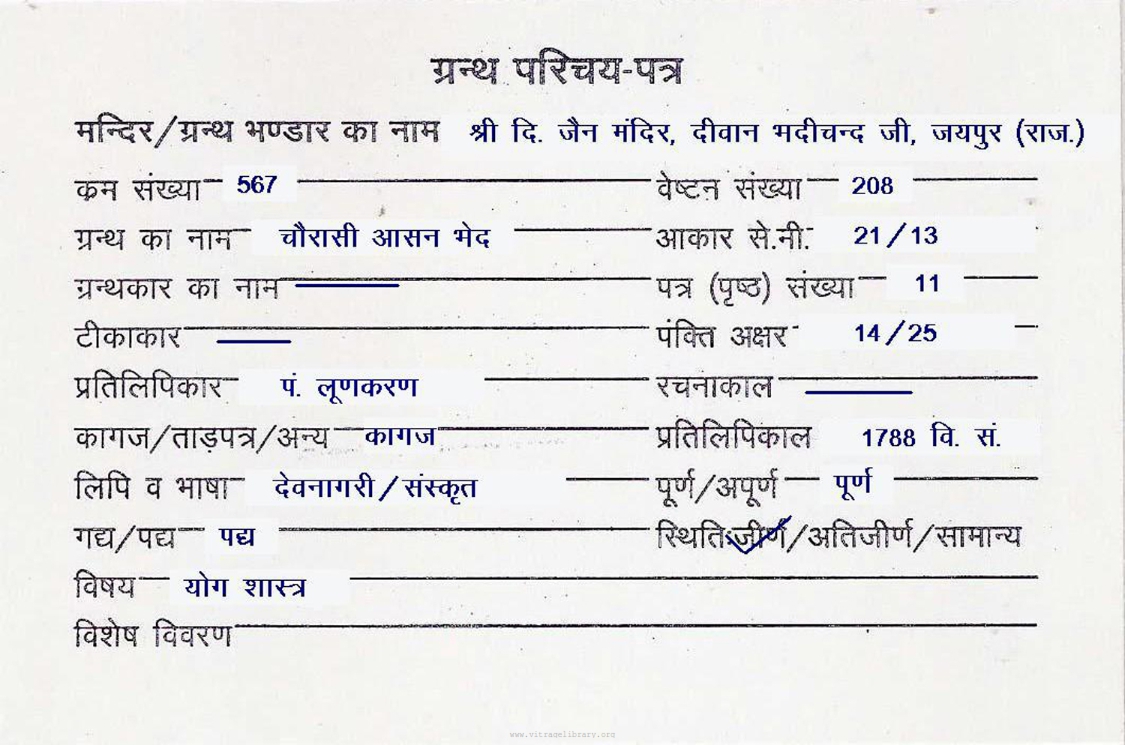 ग्रन्थ परिचय-पत्र
मन्दिर/ग्रन्थ भण्डार का नाम श्री दि. जैन मंदिर, दीवान भदीचन्द जी, जयपुर (राज.)
क्रम संख्या 567 वेष्टन संख्या 208
ग्रन्थ का नाम चौरासी आसन भेद आकार से.मी. 21/13
ग्रन्थकार का नाम पत्र (पृष्ठ) संख्या 11
टीकाकार पंक्ति अक्षर 14/25
प्रतिलिपिकार पं. लूणकरण रचनाकाल
कागज/ताड़पत्र/अन्य कागज प्रतिलिपिकाल 1788 वि. सं.
लिपि व भाषा देवनागरी/संस्कृत पूर्ण/अपूर्ण पूर्ण
गद्य/पद्य पद्य स्थिति:जीर्ण/अतिजीर्ण/सामान्य
विषय योग शास्त्र
विशेष विवरण
www.vitragelibrary.org